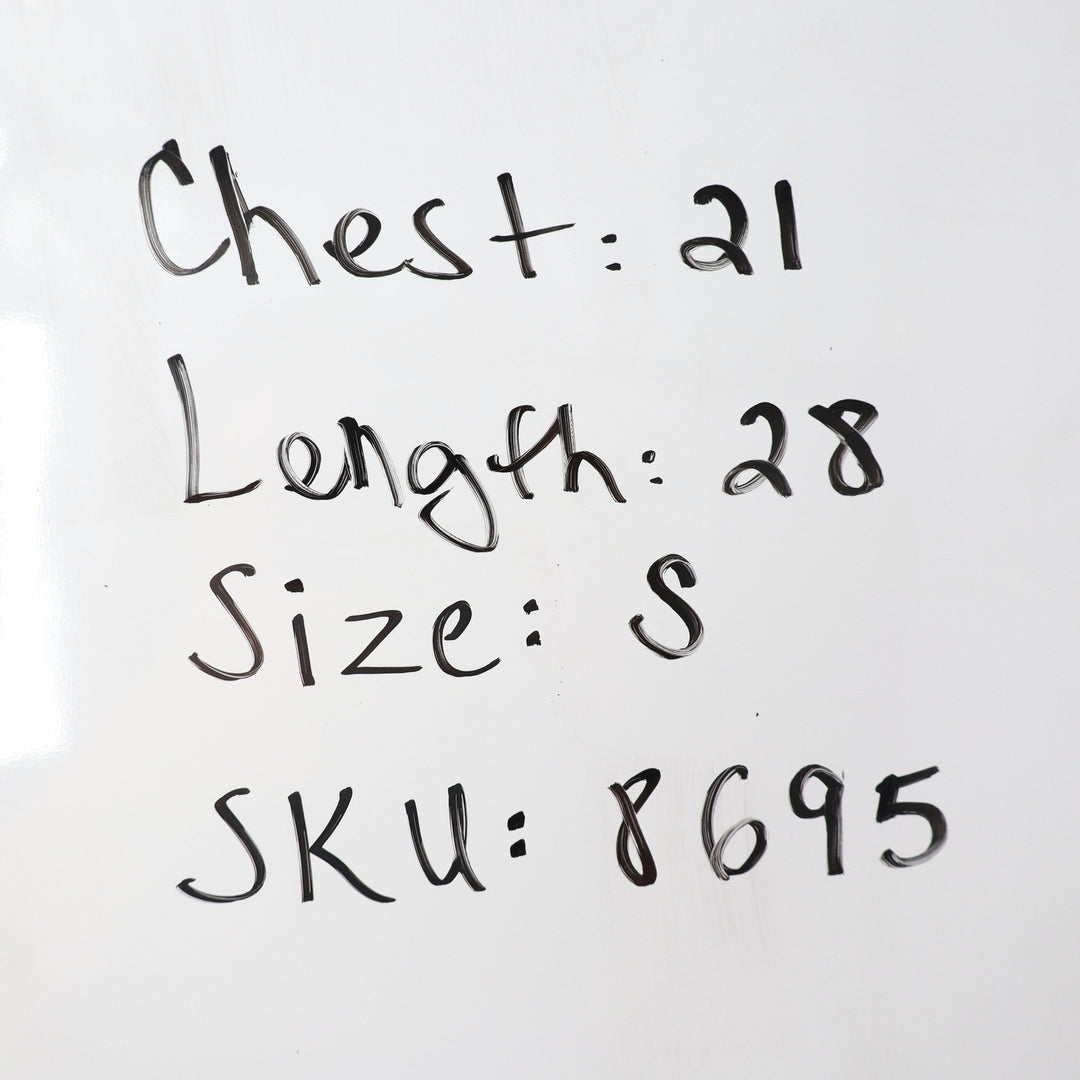 Chest: 21
Length: 28
Size: S
SKU: 8695